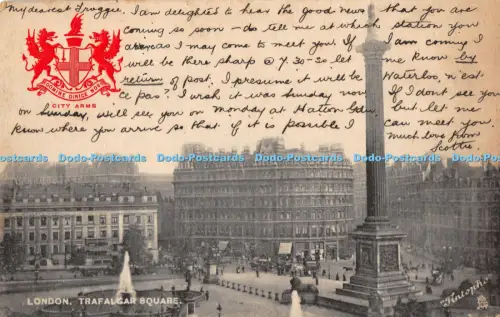 My dearest Froggie, I am delighted to hear the good news that you are
coming so soon - do tell me at which station you
as I may come to meet you. If I am coming I
will be there sharp @ 7.30-30. let me know by
return of post. I presume it will be Waterloo, n'est
ce pas? I wish it was Sunday now. If I dont see you
on Sunday, will see you on Monday at Hatton Gdn, but let me
know where you arrive so that if it is possible I can meet you.
much love from
Scottie.
DOMINE DIRIGE NOS
CITY ARMS
Dodo-Postcards Dodo-Postcards Dodo-Postcards Dodo-Postcards Dodo-Postcards Dodo-Postcards
LONDON. TRAFALGAR SQUARE.